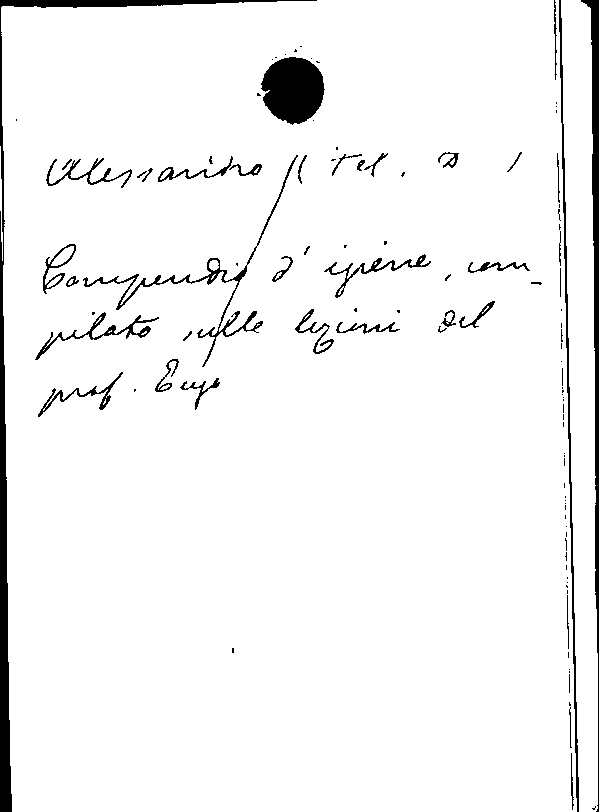 Alessandro
Compendio d' igiene, com-
pilato sulle lezioni del
prof.